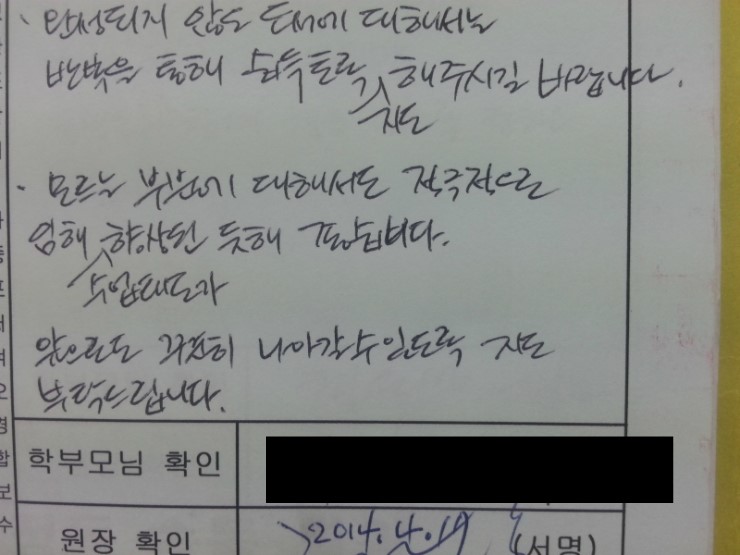 · 완성되지 않은 도서에 대해서는
반복을 통해 습득토록 지도 해주시길 바랍니다.
· 모르는 부분에 대해서도 적극적으로
임해 수업태도가 향상된 듯해 기쁩니다.
앞으로도 꾸준히 나아갈 수 있도록 지도
부탁드립니다.
학부모님 확인
원장 확인 2014. 4. (서명)